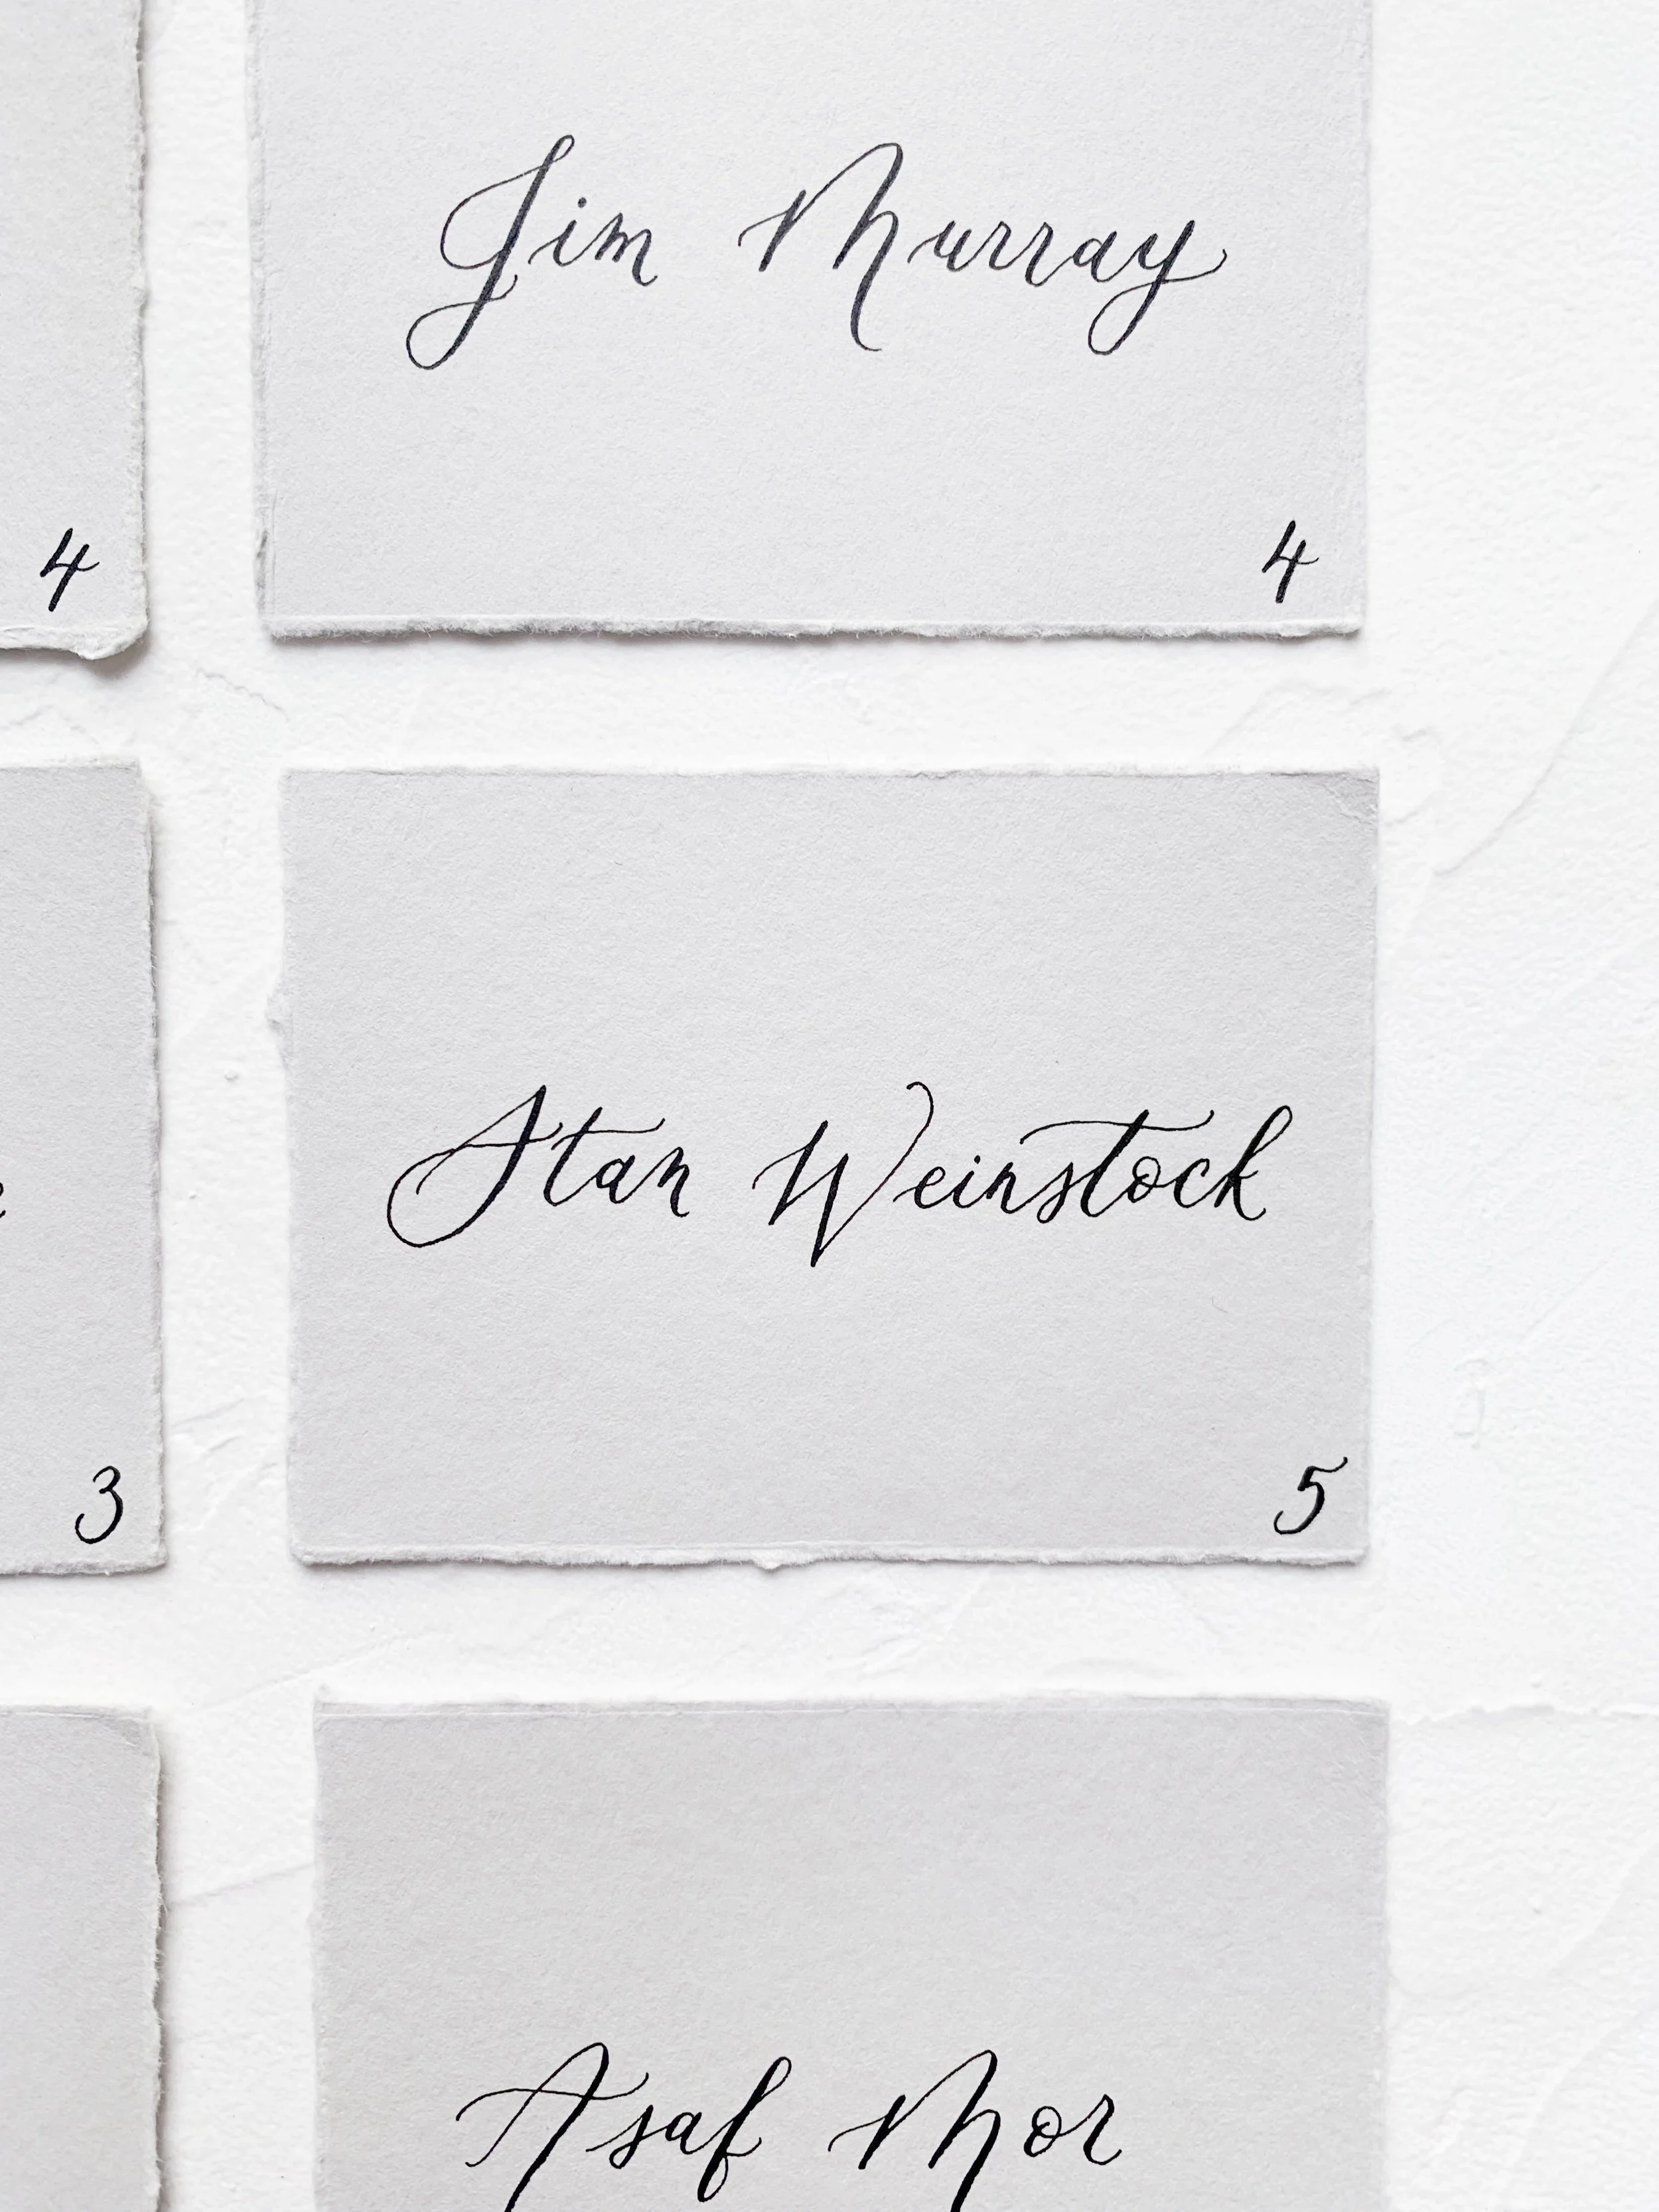 Jim Murray
4
4
Stan Weinstock
3
5
Asaf Mor